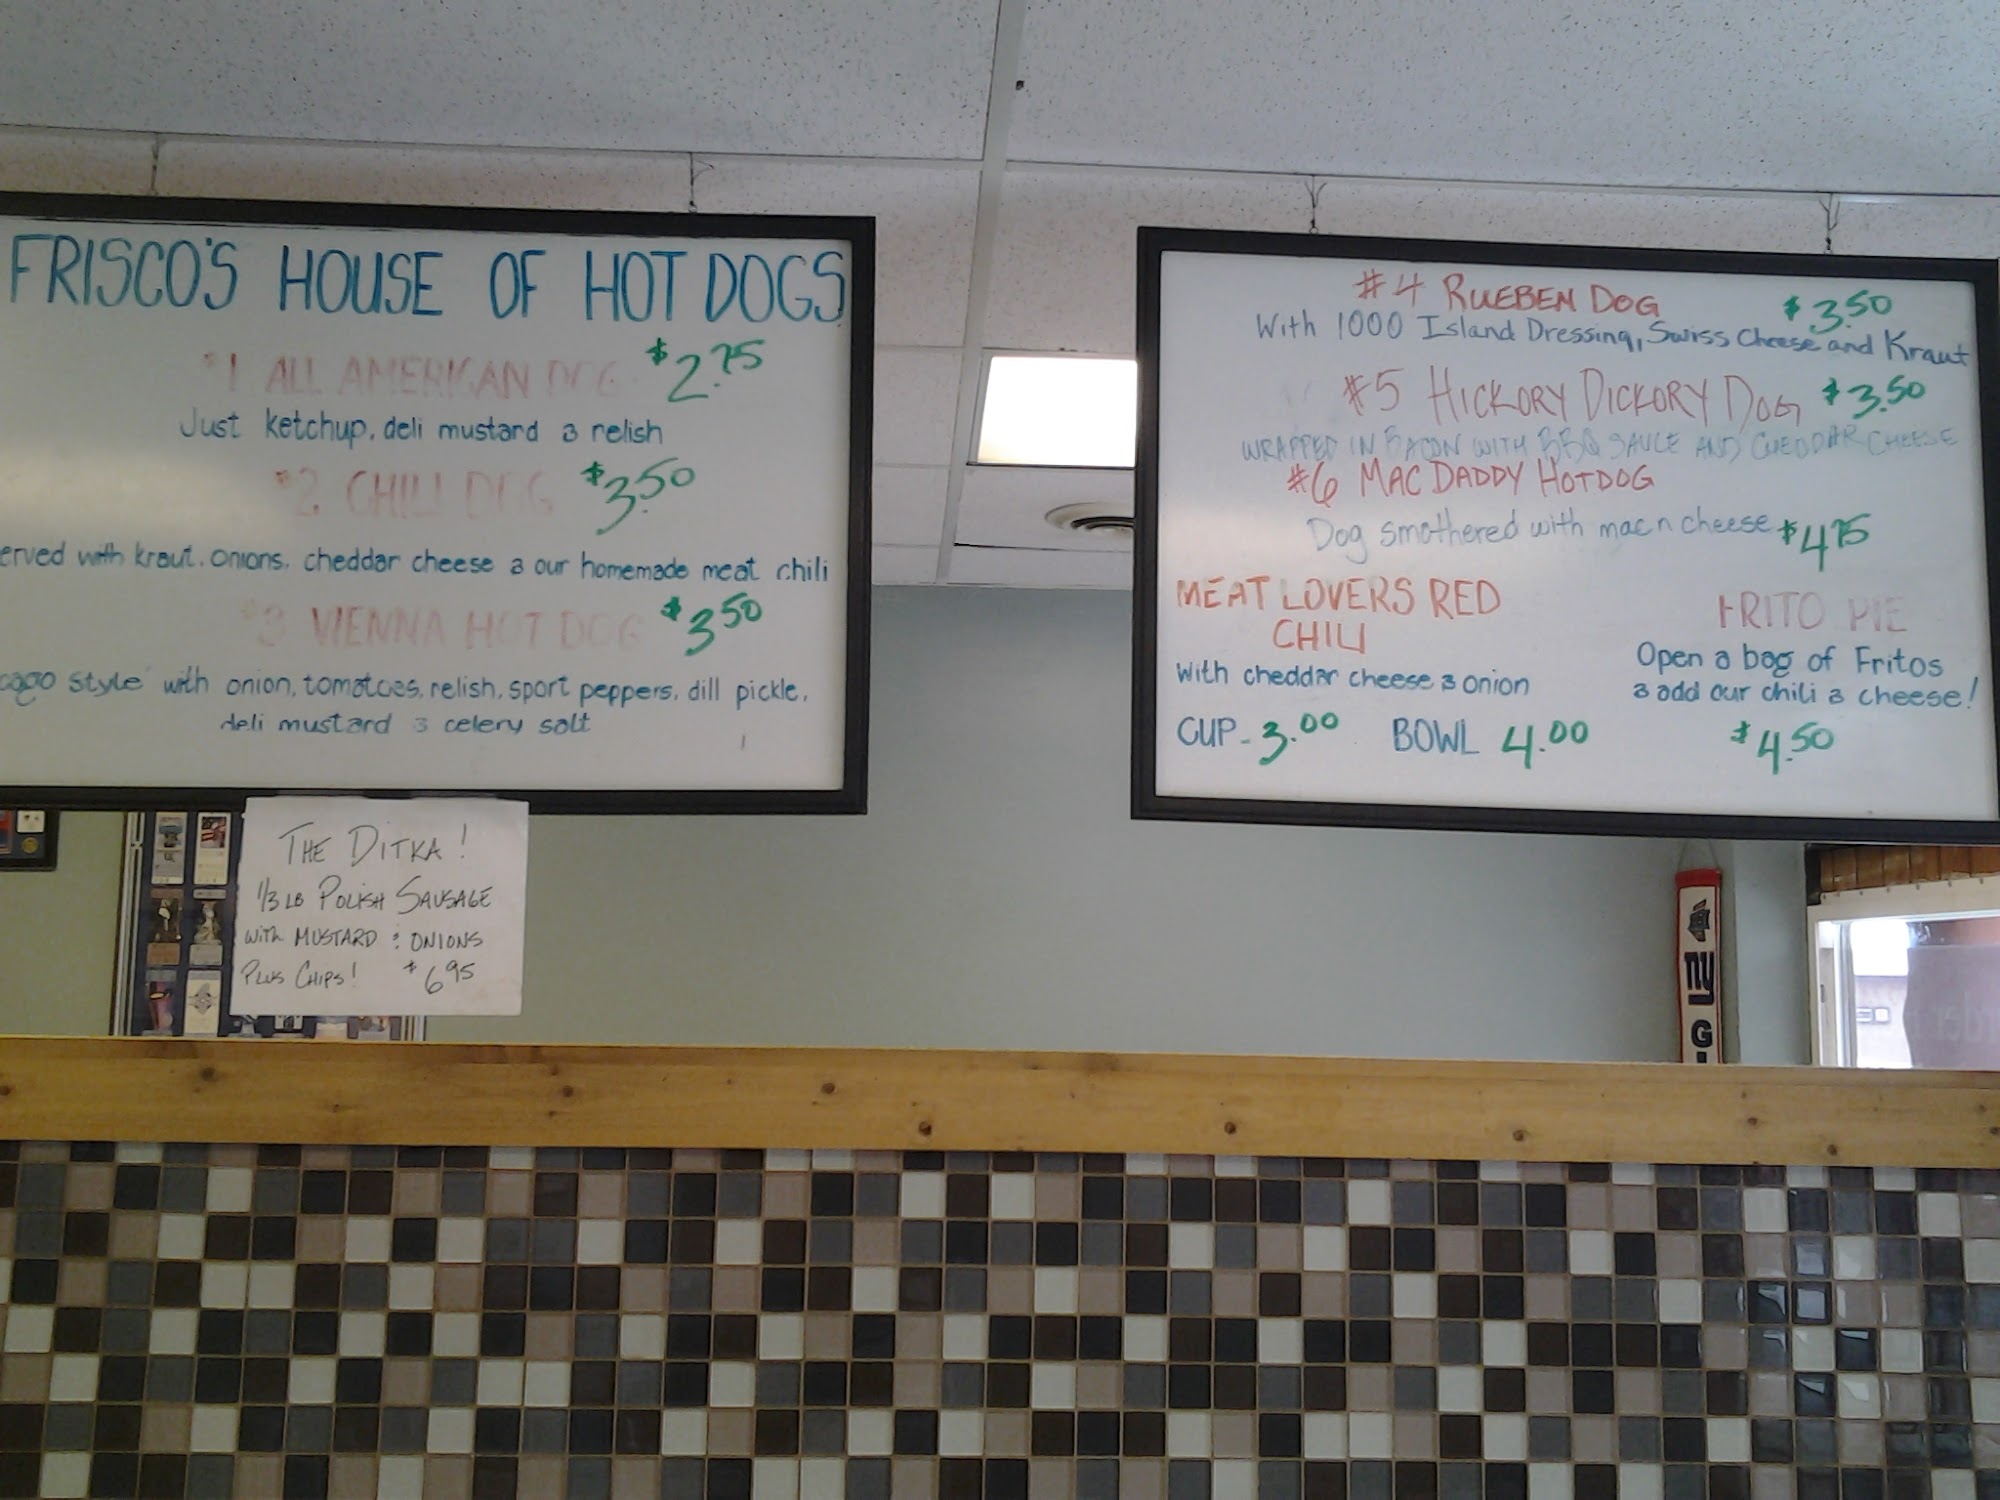 FRISCO'S HOUSE OF HOT DOGS
#1 ALL AMERICAN DOG $2.75
Just ketchup, deli mustard & relish
#2 CHILI DOG $3.50
erved with kraut, onions, cheddar cheese & our homemade meat chili
#3 VIENNA HOT DOG $3.50
cago style" with onion, tomatoes, relish, sport peppers, dill pickle,
deli mustard & celery salt
THE DITKA!
1/3 LB POLISH SAUSAGE
WITH MUSTARD & ONIONS
PLUS CHIPS! $6.95
#4 RUEBEN DOG $3.50
With 1000 Island Dressing, Swiss Cheese and Kraut
#5 HICKORY DICKORY DOG $3.50
WRAPPED IN BACON WITH BBQ SAUCE AND CHEDDAR CHEESE
#6 MAC DADDY HOTDOG
Dog smothered with mac n cheese $4.75
MEAT LOVERS RED
CHILI
with cheddar cheese & onion
CUP - 3.00 BOWL 4.00
FRITO PIE
Open a bag of Fritos
& add our chili & cheese!
$4.50
NY G